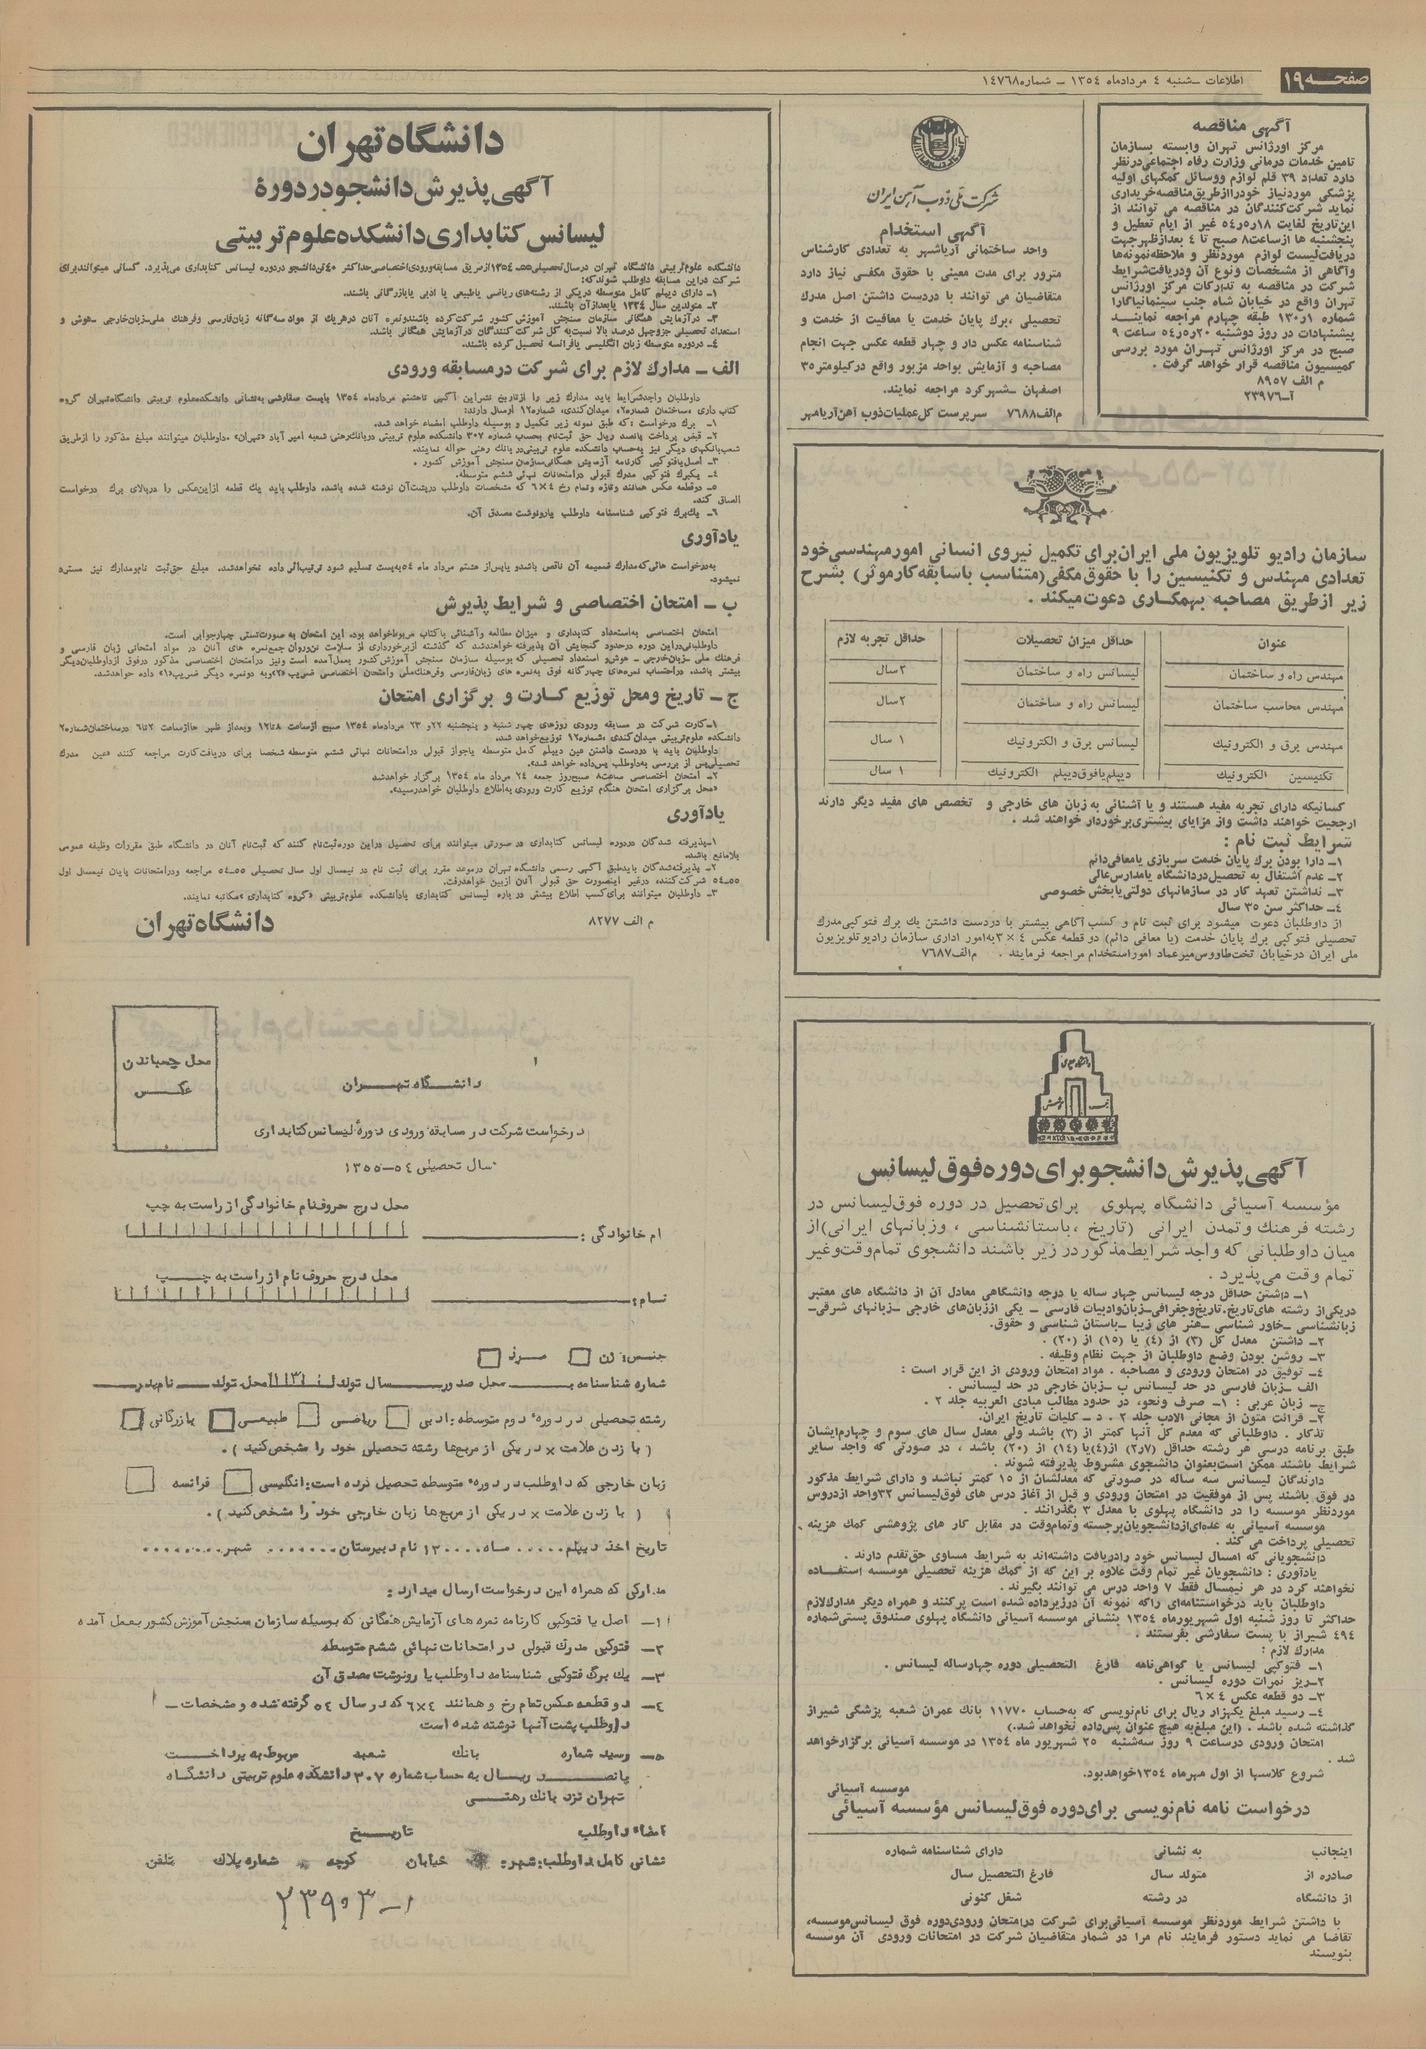 صفحه ۱۹
اطلاعات ـ شنبه ٤ مردادماه ١٣٥٤ ـ شماره ١٤٧٦٨
آگهی مناقصه
مرکز اورژانس تهران وابسته بسازمان
تامین خدمات درمانی وزارت رفاه اجتماعی درنظر
دارد تعداد ۳۹ قلم لوازم ووسائل کمکهای اولیه
پزشکی موردنیاز خودرا ازطریق مناقصه خریداری
نماید شرکت کنندگان در مناقصه می توانند از
این تاریخ لغایت ٥٤ر٥ر١٨ غیر از ایام تعطیل و
پنجشنبه ها ازساعت ۸ صبح تا ٤ بعدازظهر جهت
دریافت لیست لوازم موردنظر و ملاحظه نمونه ها
وآگاهی از مشخصات ونوع آن ودریافت شرایط
شرکت در مناقصه به تدارکات مرکز اورژانس
تهران واقع در خیابان شاه جنب سینمانیاگارا
شماره ۱ر۱۳۰ طبقه چهارم مراجعه نمایند
پیشنهادات در روز دوشنبه ٥٤ر٥ر٢٠ ساعت ۹
صبح در مرکز اورژانس تهران مورد بررسی
کمیسیون مناقصه قرار خواهد گرفت .
م الف ۸۹٥۷
آـ۲۳۹۷٦
شرکت ملی ذوب آهن ایران
آگهی استخدام
واحد ساختمانی آریاشهر به تعدادی کارشناس
مترور برای مدت معینی با حقوق مکفی نیاز دارد
متقاضیان می توانند با دردست داشتن اصل مدرك
تحصیلی ،برك پایان خدمت یا معافیت از خدمت و
شناسنامه عکس دار و چهار قطعه عکس جهت انجام
مصاحبه و آزمایش بواحد مزبور واقع درکیلومتر ۳٥
اصفهان ـ شهرکرد مراجعه نمایند.
م الف ۷٦۸۸ سرپرست کل عملیات ذوب آهن آریامهر
سازمان رادیو تلویزیون ملی ایران برای تکمیل نیروی انسانی امورمهندسی خود
تعدادی مهندس و تکنیسین را با حقوق مکفی (متناسب باسابقه کارموثر) بشرح
زیر ازطریق مصاحبه بهمکاری دعوت میکند .
عنوان حداقل میزان تحصیلات حداقل تجربه لازم
مهندس راه و ساختمان لیسانس راه و ساختمان ۳سال
مهندس محاسب ساختمان لیسانس راه و ساختمان ۲سال
مهندس برق و الکترونیك لیسانس برق و الکترونیك ۱ سال
تکنیسین الکترونیك دیپلم یافوق دیپلم الکترونیك ۱ سال
کسانیکه دارای تجربه مفید هستند و یا آشنائی به زبان های خارجی و تخصص های مفید دیگر دارند
ارجحیت خواهند داشت واز مزایای بیشتری برخوردار خواهند شد .
شرایط ثبت نام :
۱ـ دارا بودن برك پایان خدمت سربازی یامعافی دائم
۲ـ عدم اشتغال به تحصیل دردانشگاه یامدارس عالی
۳ـ نداشتن تعهد کار در سازمانهای دولتی یابخش خصوصی
٤ـ حداکثر سن ۳٥ سال
از داوطلبان دعوت میشود برای ثبت نام و کسب آگاهی بیشتر با دردست داشتن یك برك فتوکپی مدرك
تحصیلی فتوکپی برك پایان خدمت (یا معافی دائم) دو قطعه عکس ٤ × ۳ به امور اداری سازمان رادیو تلویزیون
ملی ایران درخیابان تخت طاووس میرعماد اموراستخدام مراجعه فرمایند . م الف ۷٦۸۷
آگهی پذیرش دانشجو برای دوره فوق لیسانس
مؤسسه آسیائی دانشگاه پهلوی برای تحصیل در دوره فوق لیسانس در
رشته فرهنك و تمدن ایرانی (تاریخ ،باستانشناسی ، وزبانهای ایرانی) از
میان داوطلبانی که واجد شرایط مذکور در زیر باشند دانشجوی تمام وقت و غیر
تمام وقت می پذیرد .
۱ـ داشتن حداقل درجه لیسانس چهار ساله یا درجه دانشگاهی معادل آن از دانشگاه های معتبر
دریکی از رشته های تاریخ ـ تاریخ وجغرافی ـ زبان وادبیات فارسی ـ یکی اززبان های خارجی ـ زبانهای شرقی ـ
زبانشناسی ـ خاور شناسی ـ هنر های زیبا ـ باستان شناسی و حقوق.
۲ـ داشتن معدل کل (۳) از (٤) یا (۱٥) از (۲۰) .
۳ـ روشن بودن وضع داوطلبان از جهت نظام وظیفه .
٤ـ توفیق در امتحان ورودی و مصاحبه . مواد امتحان ورودی از این قرار است :
الف ـ زبان فارسی در حد لیسانس ب ـ زبان خارجی در حد لیسانس .
ج ـ زبان عربی : ۱ـ صرف ونحو، در حدود مطالب مبادی العربیه جلد ۲ .
۲ـ قرائت متون از مجانی الادب جلد ۲ . د ـ کلیات تاریخ ایران.
تذکار . داوطلبانی که معدل کل آنها کمتر از (۳) باشد ولی معدل سال های سوم و چهارم ایشان
طبق برنامه درسی هر رشته حداقل (۷ر۲) از (٤) یا (۱٤) از (۲۰) باشد ، در صورتی که واجد سایر
شرایط باشند ممکن است بعنوان دانشجوی مشروط پذیرفته شوند .
دارندگان لیسانس سه ساله در صورتی که معدلشان از ۱٥ کمتر نباشد و دارای شرایط مذکور
در فوق باشند پس از موفقیت در امتحان ورودی و قبل از آغاز درس های فوق لیسانس ۳۲ واحد ازدروس
موردنظر موسسه را در دانشگاه پهلوی با معدل ۳ بگذرانند .
موسسه آسیائی به عده ای ازدانشجویان برجسته وتمام وقت در مقابل کار های پژوهشی کمك هزینه
تحصیلی پرداخت می کند .
دانشجویانی که امسال لیسانس خود رادریافت داشته اند به شرایط مساوی حق تقدم دارند .
یادآوری : دانشجویان غیر تمام وقت علاوه بر این که از کمك هزینه تحصیلی موسسه استفاده
نخواهند کرد در هر نیمسال فقط ۷ واحد درس می توانند بگیرند .
داوطلبان باید درخواستنامه ای راکه نمونه آن درزیرداده شده است پرکنند و همراه دیگر مدارك لازم
حداکثر تا روز شنبه اول شهریورماه ۱۳٥٤ بنشانی موسسه آسیائی دانشگاه پهلوی صندوق پستی شماره
٤۹٤ شیراز با پست سفارشی بفرستند .
مدارك لازم :
۱ـ فتوکپی لیسانس یا گواهی نامه فارغ التحصیلی دوره چهارساله لیسانس .
۲ـ ریز نمرات دوره لیسانس .
۳ـ دو قطعه عکس ٤ × ٦
٤ـ رسید مبلغ یکهزار ریال برای نام نویسی که به حساب ۱۱۷۷۰ بانك عمران شعبه پزشگی شیراز
گذاشته شده باشد . (این مبلغ به هیچ عنوان پس داده نخواهد شد.)
امتحان ورودی درساعت ۹ روز سه شنبه ۲٥ شهریور ماه ۱۳٥٤ در موسسه آسیائی برگزار خواهد
شد .
شروع کلاسها از اول مهرماه ۱۳٥٤ خواهدبود.
موسسه آسیائی
درخواست نامه نام نویسی برای دوره فوق لیسانس مؤسسه آسیائی
اینجانب به نشانی دارای شناسنامه شماره
صادره از متولد سال فارغ التحصیل سال
از دانشگاه در رشته شغل کنونی
با داشتن شرایط موردنظر موسسه آسیائی برای شرکت درامتحان ورودی دوره فوق لیسانس موسسه،
تقاضا می نماید دستور فرمایند نام مرا در شمار متقاضیان شرکت در امتحانات ورودی آن موسسه
بنویسند
دانشگاه تهران
آگهی پذیرش دانشجو در دورۀ
لیسانس کتابداری دانشکده علوم تربیتی
دانشکده علوم تربیتی دانشگاه تهران درسال تحصیلی ٥٥ـ۱۳٥٤ ازطریق مسابقه ورودی اختصاصی حداکثر ٤۰ تن دانشجو دردوره لیسانس کتابداری می پذیرد. کسانی میتوانند برای
شرکت دراین مسابقه داوطلب شوند که:
۱ـ دارای دیپلم کامل متوسطه دریکی از رشته های ریاضی یاطبیعی یا ادبی یابازرگانی باشند.
۲ـ متولدین سال ۱۳۳٤ یابعدازآن باشند.
۳ـ درآزمایش همگانی سازمان سنجش آموزش کشور شرکت کرده باشندونمره آنان درهریك از مواد سه گانه زبان فارسی وفرهنك ملی ـ زبان خارجی ـ هوش و
استعداد تحصیلی جزوچهل درصد بالا نسبت به کل شرکت کنندگان درآزمایش همگانی باشد.
٤ـ دردوره متوسطه زبان انگلیسی یافرانسه تحصیل کرده باشند.
الف ـ مدارك لازم برای شرکت درمسابقه ورودی
داوطلبان واجدشرایط باید مدارك زیر را ازتاریخ نشراین آگهی تاهشتم مردادماه ۱۳٥٤ باپست سفارشی به نشانی دانشکده علوم تربیتی دانشگاه تهران گروه
کتاب داری «ساختمان شماره۲» میدان کندی، شماره۱۲ ارسال دارند:
۱ـ برك درخواست «که طبق نمونه زیر تکمیل و بوسیله داوطلب امضاء خواهد شد.
۲ـ قبض پرداخت پانصد ریال حق ثبت نام بحساب شماره ۳۰۷ دانشکده علوم تربیتی دربانك رهنی شعبه امیر آباد «تهران» ،داوطلبان میتوانند مبلغ مذکور را ازطریق
شعب بانکهای دیگر نیز به حساب دانشکده علوم تربیتی در بانك رهنی حواله نمایند.
۳ـ اصل یافتوکپی کارنامه آزمایش همگانی سازمان سنجش آموزش کشور .
٤ـ یکبرك فتوکپی مدرك قبولی درامتحانات نهائی ششم متوسطه.
٥ـ دوقطعه عکس همانند وتازه وتمام رخ ٤×٦ که مشخصات داوطلب درپشت آن نوشته شده باشد. داوطلب باید یك قطعه ازاین عکس را دربالای برك درخواست
الصاق کند.
٦ـ یك برك فتوکپی شناسنامه داوطلب یارونوشت مصدق آن.
یادآوری
به درخواست هائی که مدارك ضمیمه آن ناقص باشدو یاپس از هشتم مرداد ماه ٥٤ به پست تسلیم شود ترتیب اثر داده نخواهدشد. مبلغ حق ثبت نام ومدارك نیز مسترد
نمیشود.
ب ـ امتحان اختصاصی و شرایط پذیرش
امتحان اختصاصی به استعداد کتابداری و میزان مطالعه وآشنائی باکتاب مربوط خواهد بود. این امتحان به صورت تستی چهارجوابی است.
داوطلبانی دراین دوره درحدود گنجایش آن پذیرفته خواهندشد که گذشته ازبرخورداری از سلامت تن وروان جمع نمره های آنان در مواد امتحانی زبان فارسی و
فرهنك ملی ـ زبان خارجی ـ هوش و استعداد تحصیلی که بوسیله سازمان سنجش آموزش کشور بعمل آمده است ونیز درامتحان اختصاصی مذکور درفوق ازداوطلبان دیگر
بیشتر باشد. دراحتساب نمره های چهارگانه فوق به نمره های زبان فارسی وفرهنك ملی وامتحان اختصاصی ضریب «۲» وبه دونمره دیگر ضریب «۱» داده خواهدشد.
ج ـ تاریخ ومحل توزیع کارت و برگزاری امتحان
۱ـ کارت شرکت در مسابقه ورودی روزهای چهار شنبه و پنجشنبه ۲۲و ۲۳ مردادماه ۱۳٥٤ صبح ازساعت ۸تا۱۲ وبعداز ظهر ازساعت ۲تا٦ درساختمان شماره۲
دانشکده علوم تربیتی میدان کندی «شماره۱۲» توزیع خواهدشد.
داوطلبان باید با دردست داشتن عین دیپلم کامل متوسطه یاجواز قبولی درامتحانات نهائی ششم متوسطه شخصا برای دریافت کارت مراجعه کنند «عین مدرك
تحصیلی پس از بررسی به داوطلب پس داده خواهد شد».
۲ـ امتحان اختصاصی ساعت۸ صبح روز جمعه ۲٤ مرداد ماه ۱۳٥٤ برگزار خواهدشد
«محل برگزاری امتحان هنگام توزیع کارت ورودی به اطلاع داوطلبان خواهدرسید».
یادآوری
۱ـ پذیرفته شدگان دردوره لیسانس کتابداری در صورتی میتوانند برای تحصیل دراین دوره ثبت نام کنند که ثبت نام آنان در دانشگاه طبق مقررات وظیفه عمومی
بلامانع باشد.
۲ـ پذیرفته شدگان بایدطبق آگهی رسمی دانشگاه تهران درموعد مقرر برای ثبت نام در نیمسال اول سال تحصیلی ٥٥ـ٥٤ مراجعه ودرامتحانات پایان نیمسال اول
٥٥ـ٥٤ شرکت کنند، درغیر اینصورت حق قبولی آنان ازبین خواهدرفت.
۳ـ داوطلبان میتوانند برای کسب اطلاع بیشتر در باره لیسانس کتابداری بادانشکده علوم تربیتی «گروه کتابداری »مکاتبه نمایند.
م الف ۸۲۷۷ دانشگاه تهران
محل چسباندن
عکس
دانشگاه تهران
درخواست شرکت در مسابقه ورودی دورۀ لیسانس کتابداری
سال تحصیلی ٥٤ـ۱۳٥٥
محل درج حروف نام خانوادگی از راست به چپ
ام خانوادگی :
محل درج حروف نام از راست به چپ
نام :
جنس: زن مرد
شماره شناسنامه محل صدور سال تولد ۱۳ محل تولد نام پدر
رشته تحصیلی در دورۀ دوم متوسطه: ادبی ریاضی طبیعی بازرگانی
( با زدن علامت × در یکی از مربع ها رشته تحصیلی خود را مشخص کنید ) .
زبان خارجی که داوطلب در دورۀ متوسطه تحصیل کرده است: انگلیسی فرانسه
( با زدن علامت × در یکی از مربع ها زبان خارجی خود را مشخص کنید ) .
تاریخ اخذ دیپلم ..... ماه .... ۱۳ نام دبیرستان ....... شهر ........
مدارکی که همراه این درخواست ارسال میدارد :
۱ـ اصل یا فتوکپی کارنامه نمره های آزمایش همگانی که بوسیله سازمان سنجش آموزش کشور بعمل آمده
۲ـ فتوکپی مدرك قبولی در امتحانات نهائی ششم متوسطه
۳ـ یك برگ فتوکپی شناسنامه داوطلب یا رونوشت مصدق آن
٤ـ دو قطعه عکس تمام رخ و همانند ٤×٦ که در سال ٥٤ گرفته شده و مشخصات ـ
داوطلب پشت آنها نوشته شده است
٥ـ رسید شماره بانك شعبه مربوط به پرداخت
پانصد ریال به حساب شماره ۳۰۷ دانشکده علوم تربیتی دانشگاه
تهران نزد بانك رهنی
امضاء داوطلب تاریخ
نشانی کامل داوطلب: شهر: خیابان کوچه شماره پلاك تلفن
۲۳۹۰۳ـ۱